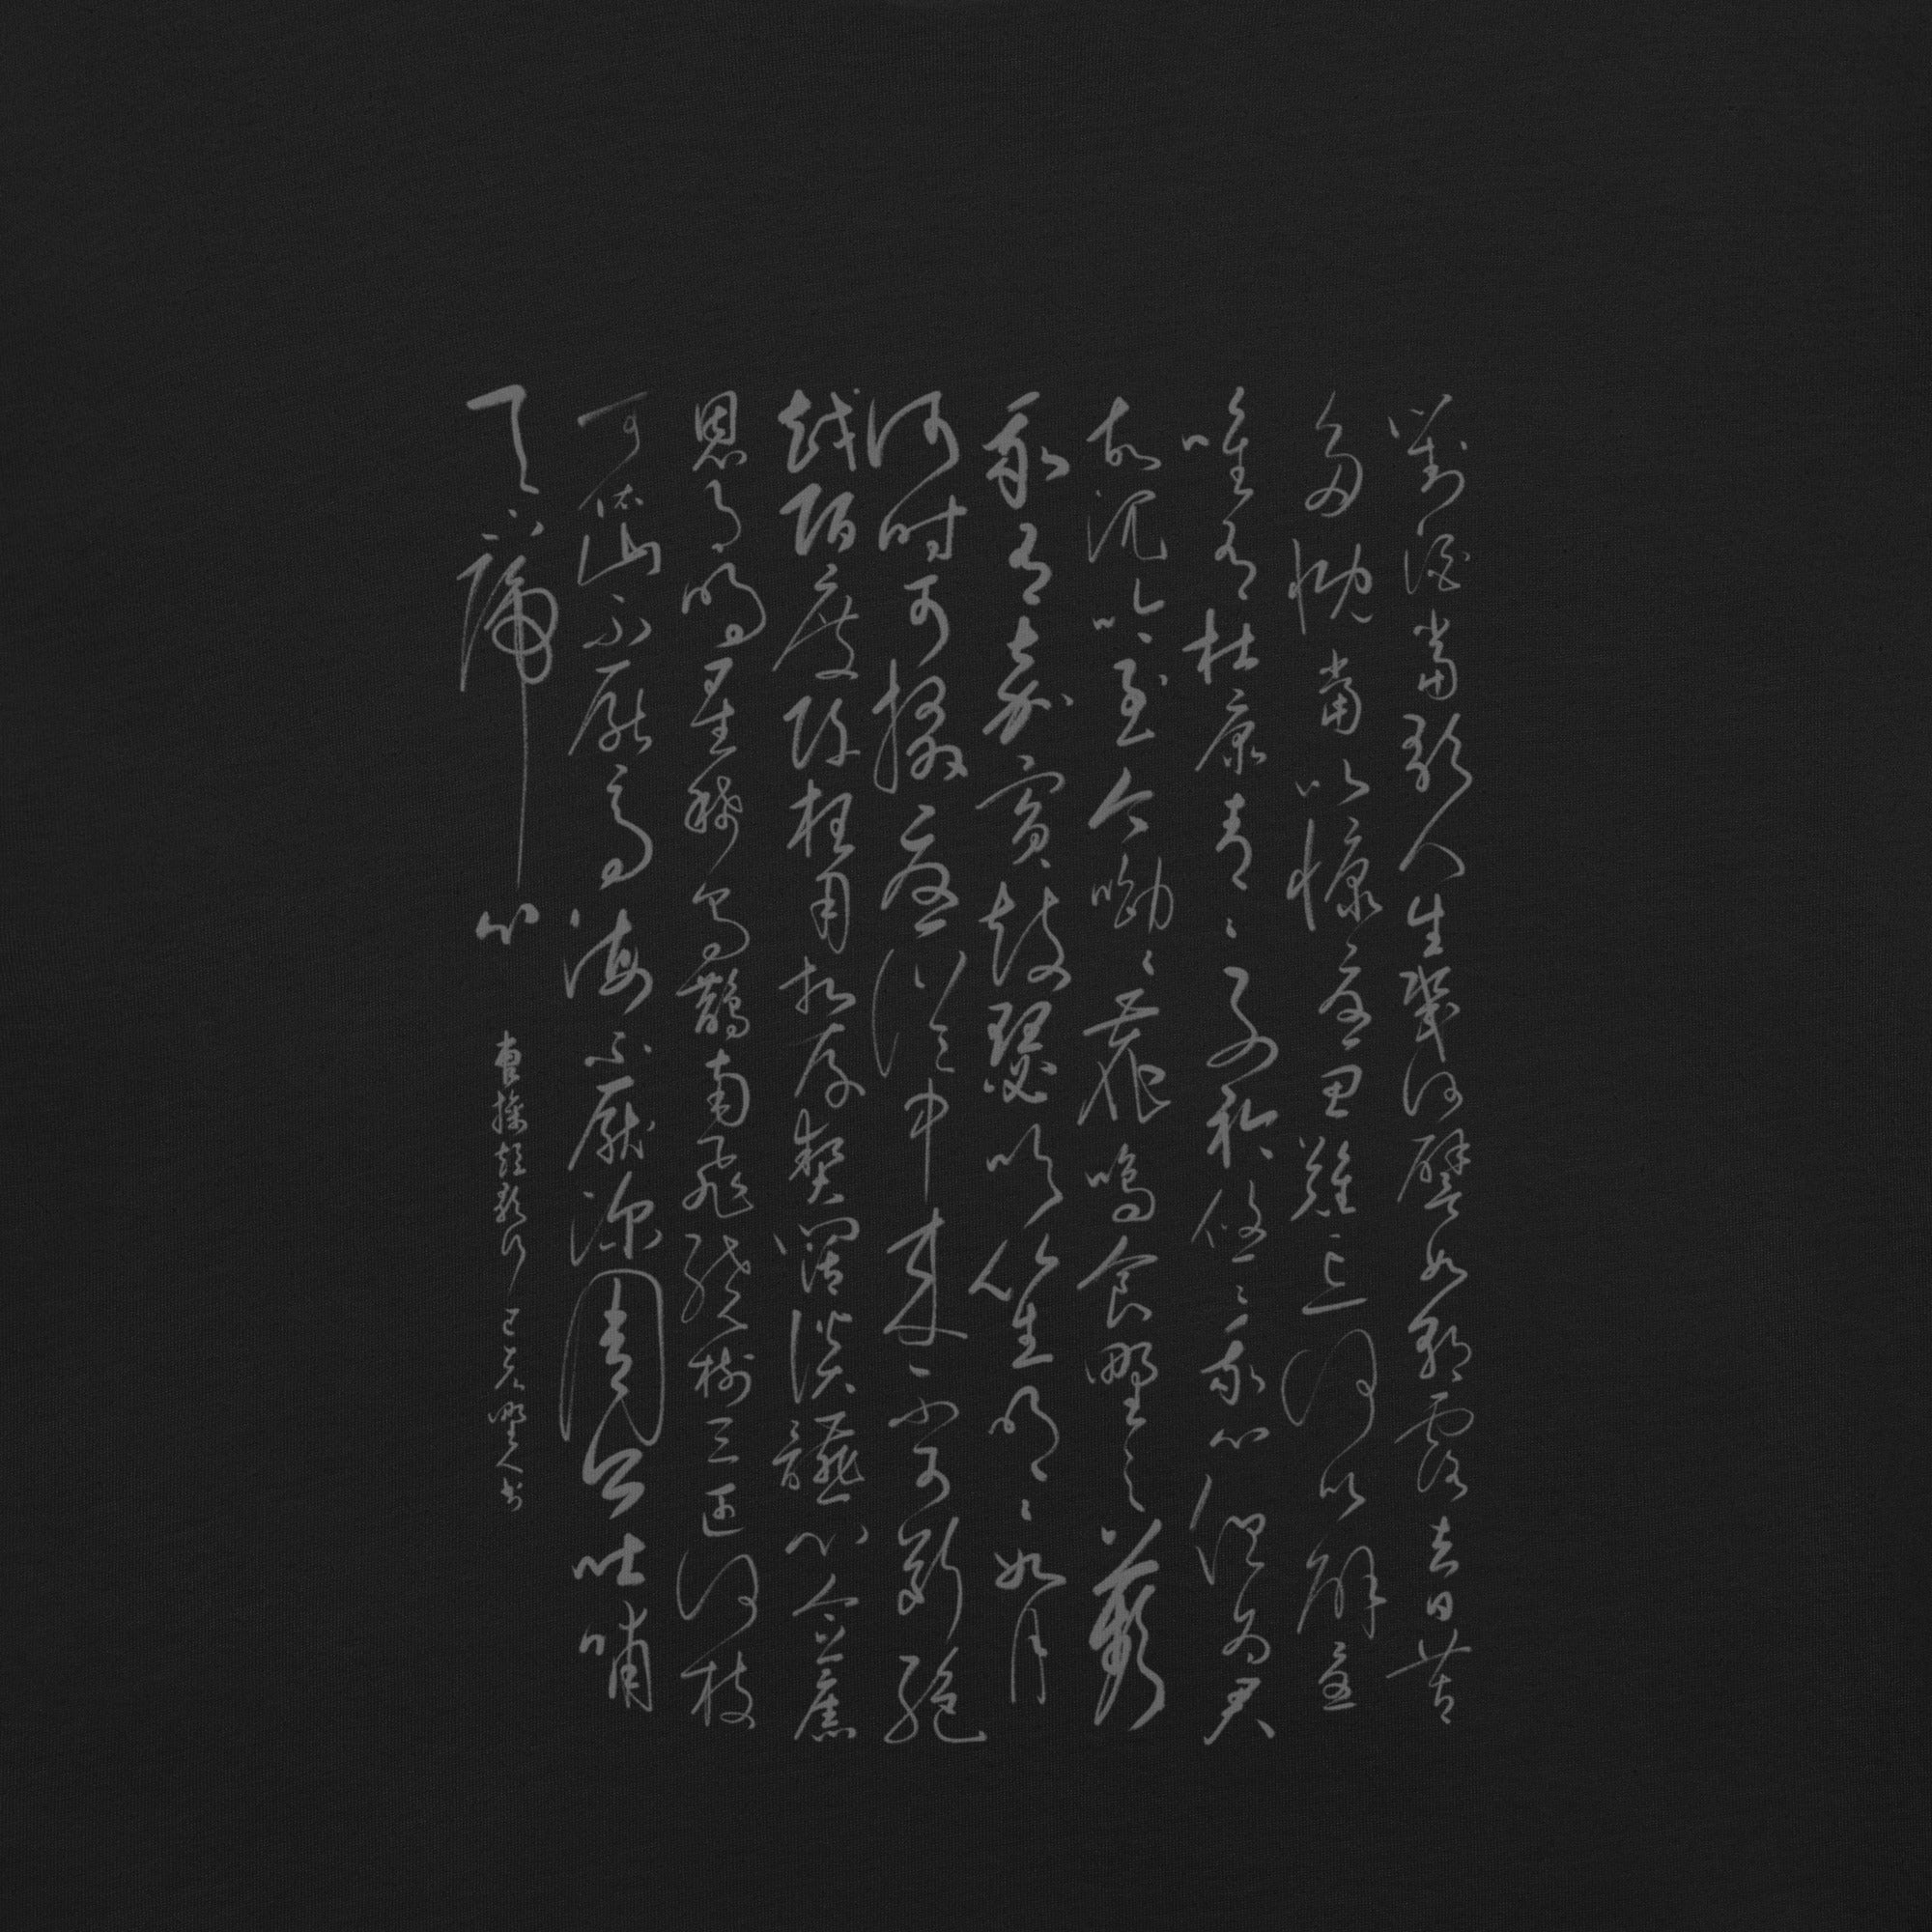 對酒當歌人生幾何譬如朝露去日苦
多慨當以慷憂思難忘何以解憂
唯有杜康青〻子衿悠〻我心但為君
故沉吟至今呦〻鹿鳴食野之蘋
我有嘉賓鼓瑟吹笙明〻如月
何時可掇憂從中來不可斷絕
越陌度阡枉用相存契闊談讌心念舊
恩月明星稀烏鵲南飛繞樹三匝何枝
可依山不厭高海不厭深周公吐哺
天下歸心
曹操短歌行己亥野人書